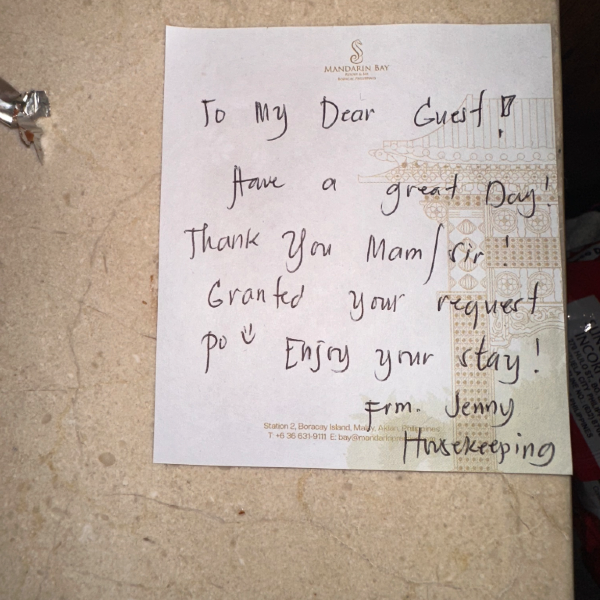 MANDARIN BAY
To My Dear Guest!
Have a great Day!
Thank You Mam/Sir!
Granted your request
po Enjoy your stay!
Frm. Jenny
Station 2, Boracay Island, Malay, Aklan, Philippines
T +6 36 631-9111 E: bay@mandarin
Housekeeping